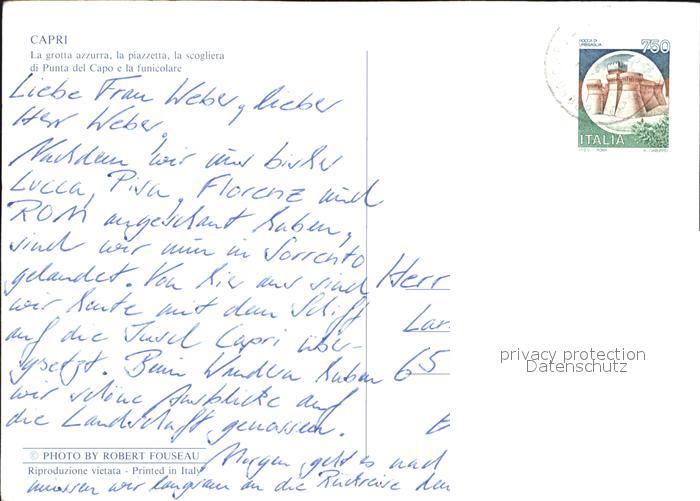 CAPRI
La grotta azzurra, la piazzetta, la scogliera
di Punta del Capo e la funicolare
Liebe Frau Weber, lieber
Herr Weber,
Nachdem wir uns bisher
Lucca, Pisa, Florenz und
ROM angeschaut haben,
sind wir nun in Sorrento
gelandet. Von hier aus sind
wir heute mit dem Schiff
auf die Insel Capri über-
gesetzt. Beim Wandern haben
wir schöne Ausblicke auf
die Landschaft genossen.
Morgen geht es nach
müssen wir langsam an die Rückreise den
© PHOTO BY ROBERT FOUSEAU
Riproduzione vietata - Printed in Italy
ROCCA DI
URBISAGLIA
750
ITALIA
Herr
65
privacy protection
Datenschutz